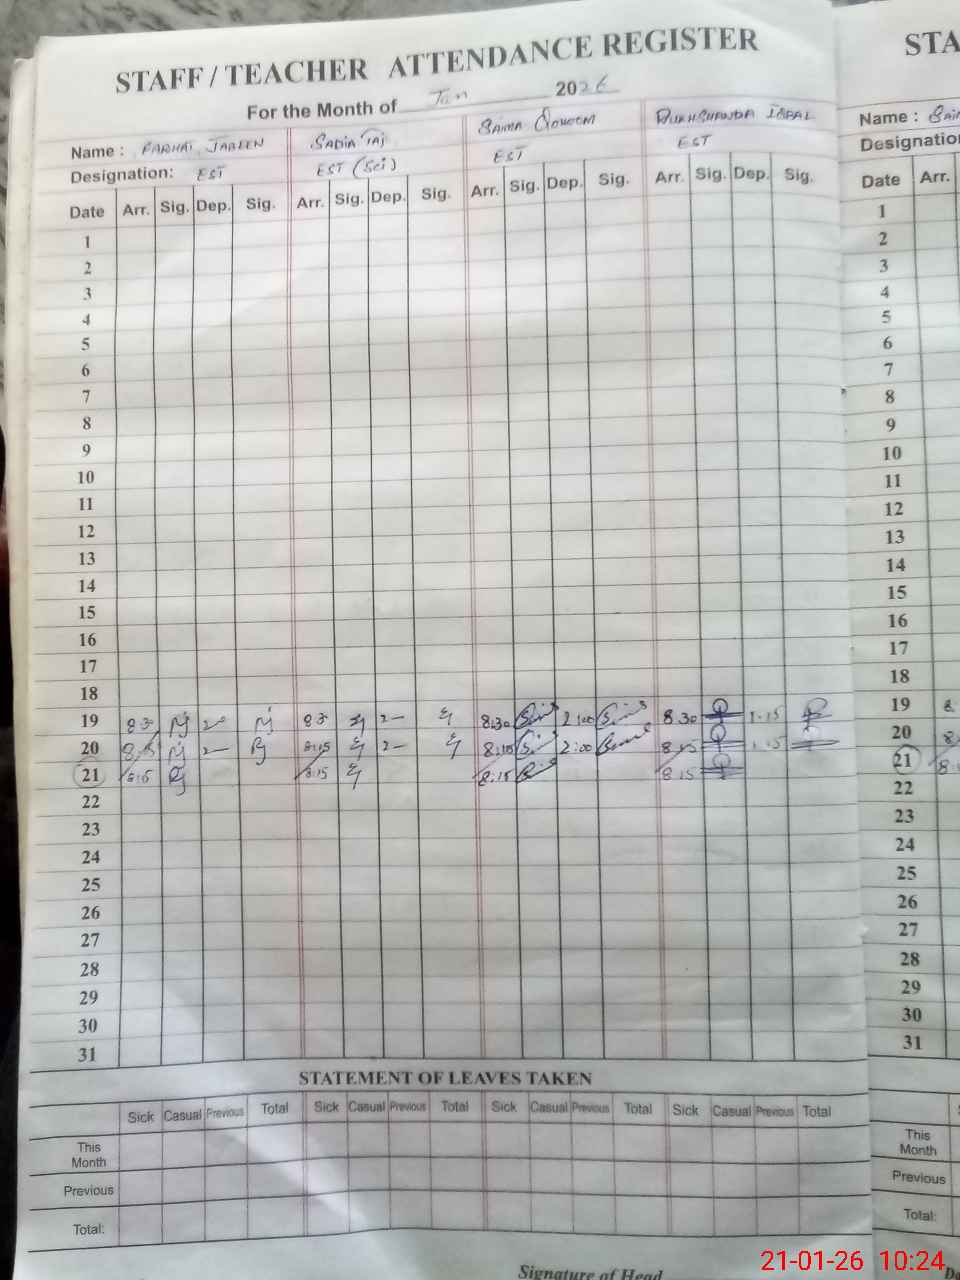 STAFF / TEACHER ATTENDANCE REGISTER
For the Month of Jan 2026
Name : FARHAT JABEEN SADIA TAJ SAIMA QOWOOM RUKHSHANDA IQBAL
Designation: EST EST (Sci) EST EST
Date Arr. Sig. Dep. Sig. Arr. Sig. Dep. Sig. Arr. Sig. Dep. Sig. Arr. Sig. Dep. Sig.
1
2
3
4
5
6
7
8
9
10
11
12
13
14
15
16
17
18
19 8:30 2:00 8:30 2— 8:30 2:00 8.30 1.15
20 8:15 2— 8:15 2— 8:15 2:00 8.15 1.15
21 8:15 8:15 8:15 8.15
22
23
24
25
26
27
28
29
30
31
STATEMENT OF LEAVES TAKEN
Sick Casual Previous Total Sick Casual Previous Total Sick Casual Previous Total Sick Casual Previous Total
This Month
Previous
Total:
Signature of Head
STA
Name :
Designatio
Date Arr.
1
2
3
4
5
6
7
8
9
10
11
12
13
14
15
16
17
18
19 8
20 8
21 8
22
23
24
25
26
27
28
29
30
31
This Month
Previous
Total:
21-01-26 10:24